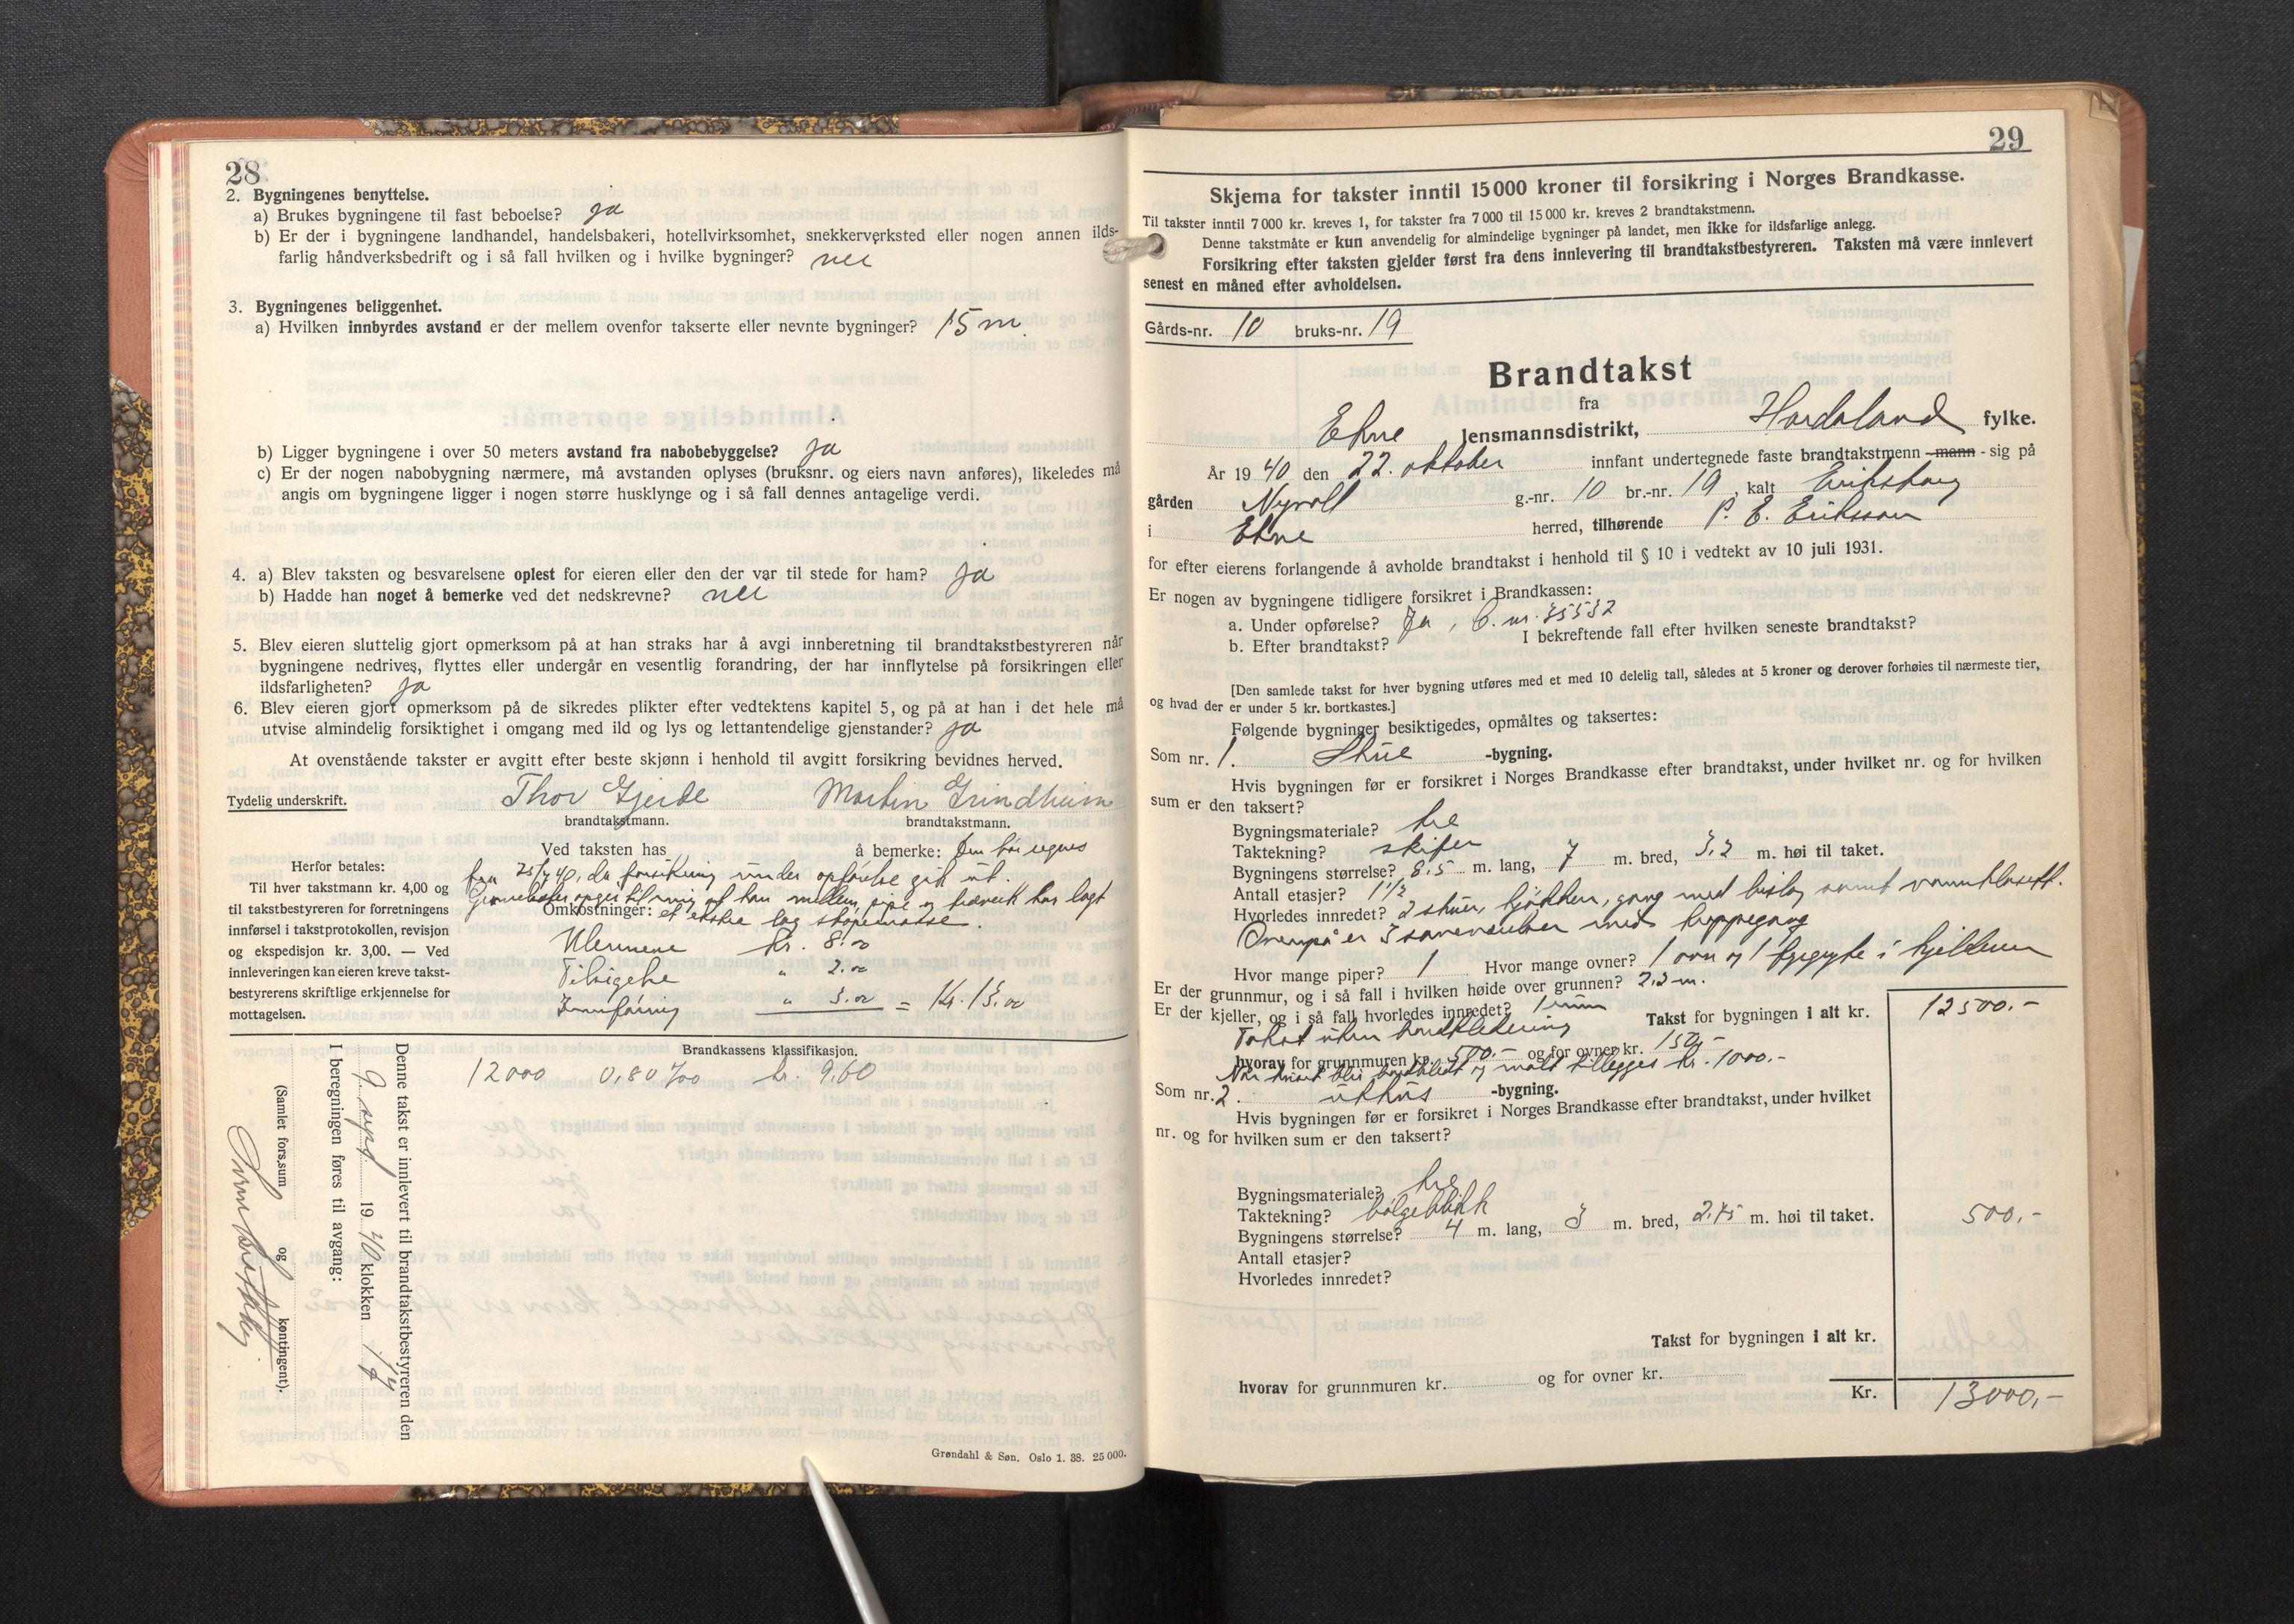 28
2. Bygningenes benyttelse.
a) Brukes bygningene til fast beboelse? ja
b) Er der i bygningene landhandel, handelsbakeri, hotellvirksomhet, snekkerverksted eller nogen annen ilds-
farlig håndverksbedrift og i så fall hvilken og i hvilke bygninger? nei
3. Bygningenes beliggenhet.
a) Hvilken innbyrdes avstand er der mellem ovenfor takserte eller nevnte bygninger? 15 m
b) Ligger bygningene i over 50 meters avstand fra nabobebyggelse? ja
c) Er der nogen nabobygning nærmere, må avstanden oplyses (bruksnr. og eiers navn anføres), likeledes må
angis om bygningene ligger i nogen større husklynge og i så fall dennes antagelige verdi.
4. a) Blev taksten og besvarelsene oplest for eieren eller den der var til stede for ham? ja
b) Hadde han noget å bemerke ved det nedskrevne? nei
5. Blev eieren sluttelig gjort opmerksom på at han straks har å avgi innberetning til brandtakstbestyreren når
bygningene nedrives, flyttes eller undergår en vesentlig forandring, der har innflytelse på forsikringen eller
ildsfarligheten? ja
6. Blev eieren gjort opmerksom på de sikredes plikter efter vedtektens kapitel 5, og på at han i det hele må
utvise almindelig forsiktighet i omgang med ild og lys og lettantendelige gjenstander? ja
At ovenstående takster er avgitt efter beste skjønn i henhold til avgitt forsikring bevidnes herved.
Tydelig underskrift. Thor Gjerde Martin Grindheim
brandtakstmann. brandtakstmann.
Ved taksten has å bemerke: Den bør regnes
fra 25/7 40, da forsikring under opførelse gik ut.
opgir til mig at han mellem pipe og treverk har lagt
Omkostninger: et ekstra lag
Herfor betales:
Til hver takstmann kr. 4,00 og
til takstbestyreren for forretningens
innførsel i takstprotokollen, revisjon
og ekspedisjon kr. 3,00. — Ved
innleveringen kan eieren kreve takst-
bestyrerens skriftlige erkjennelse for
mottagelsen.
kr. 8.00
" 2.00
Innføring " 3.00 = Kr. 13.00
Brandkassens klassifikasjon.
12000 0,80 ‰ kr. 9,60
Denne takst er innlevert til brandtakstbestyreren den
9. sept 1940 klokken
I beregningen føres til avgang:
(Samlet fors.sum og kontingent).
Grøndahl & Søn. Oslo 1. 38. 25 000.
29
Skjema for takster inntil 15 000 kroner til forsikring i Norges Brandkasse.
Til takster inntil 7 000 kr. kreves 1, for takster fra 7 000 til 15 000 kr. kreves 2 brandtakstmenn.
Denne takstmåte er kun anvendelig for almindelige bygninger på landet, men ikke for ildsfarlige anlegg.
Forsikring efter taksten gjelder først fra dens innlevering til brandtakstbestyreren. Taksten må være innlevert
senest en måned efter avholdelsen.
Gårds-nr. 10 bruks-nr. 19
Brandtakst
fra
Etne lensmannsdistrikt, Hordaland fylke.
År 1940 den 22. oktober innfant undertegnede faste brandtakstmenn -mann- sig på
gården g.-nr. 10 br.-nr. 19, kalt Eriksborg
i Etne herred, tilhørende P. E. Eriksson
for efter eierens forlangende å avholde brandtakst i henhold til § 10 i vedtekt av 10 juli 1931.
Er nogen av bygningene tidligere forsikret i Brandkassen:
a. Under opførelse? Ja, 35532
b. Efter brandtakst? I bekreftende fall efter hvilken seneste brandtakst?
[Den samlede takst for hver bygning utføres med et med 10 delelig tall, således at 5 kroner og derover forhøies til nærmeste tier,
og hvad der er under 5 kr. bortkastes.]
Følgende bygninger besiktigedes, opmåltes og taksertes:
Som nr. 1. Stue -bygning.
Hvis bygningen før er forsikret i Norges Brandkasse efter brandtakst, under hvilket nr. og for hvilken
sum er den taksert?
Bygningsmateriale? tre
Taktekning? skifer
Bygningens størrelse? 8,5 m. lang, 7 m. bred, 3,2 m. høi til taket.
Antall etasjer? 1 1/2
Hvorledes innredet? 2 stuer, kjøkken, gang med bislag samt vannklosett.
Ovenpå er 3 soveværelser med trappegang
Hvor mange piper? 1 Hvor mange ovner? 1 ovn og 1 i kjelleren
Er der grunnmur, og i så fall i hvilken høide over grunnen? 2,2 m.
Er der kjeller, og i så fall hvorledes innredet? 1 rum
Takst uten bordkledning Takst for bygningen i alt kr. 12500.-
hvorav for grunnmuren kr. 500.- og for ovner kr. 150,-
Når huset blir bordkledt og malt tillegges kr. 1000.-
Som nr. 2. uthus -bygning.
Hvis bygningen før er forsikret i Norges Brandkasse efter brandtakst, under hvilket
nr. og for hvilken sum er den taksert?
Bygningsmateriale? tre
Taktekning? bølgeblikk
Bygningens størrelse? 4 m. lang, 3 m. bred, 2,75 m. høi til taket. 500.-
Antall etasjer?
Hvorledes innredet?
Takst for bygningen i alt kr.
hvorav for grunnmuren kr. og for ovner kr.
Kr. 13000,-